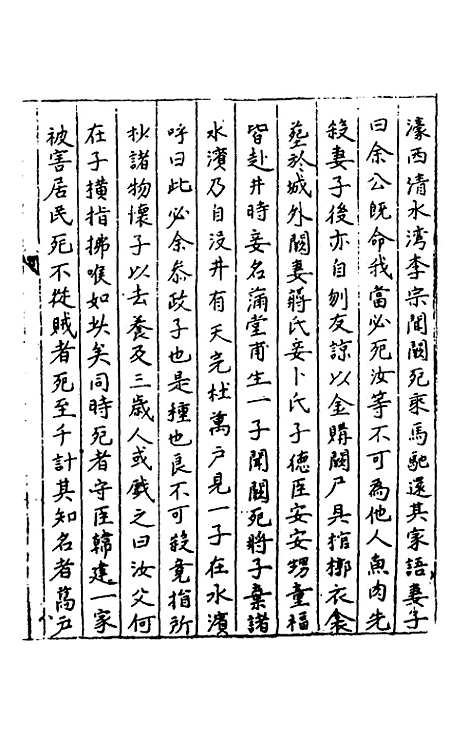 濠西清水湾李宗聞闕死乘馬馳還其家語妻子
曰余公旣命我當必死汝等不可為他人魚肉先
殺妻子後亦自刎友諒以金購闕尸具棺槨衣衾
塟於城外闕妻蔣氏妾卜氏子德臣安安甥童福
皆赴井時妾名滿堂甫生一子聞闕死將子棄諸
水濱乃自没井有天完杜萬户見一子在水濱
呼曰此必余叅政子也是種也良不可殺竟指所
杪諸物懷子以去養及三歲人或戲之曰汝父何
在子横指拂喉如状矣同時死者守臣韓建一家
被害居民死不從賊者死至千計其知名者萬户